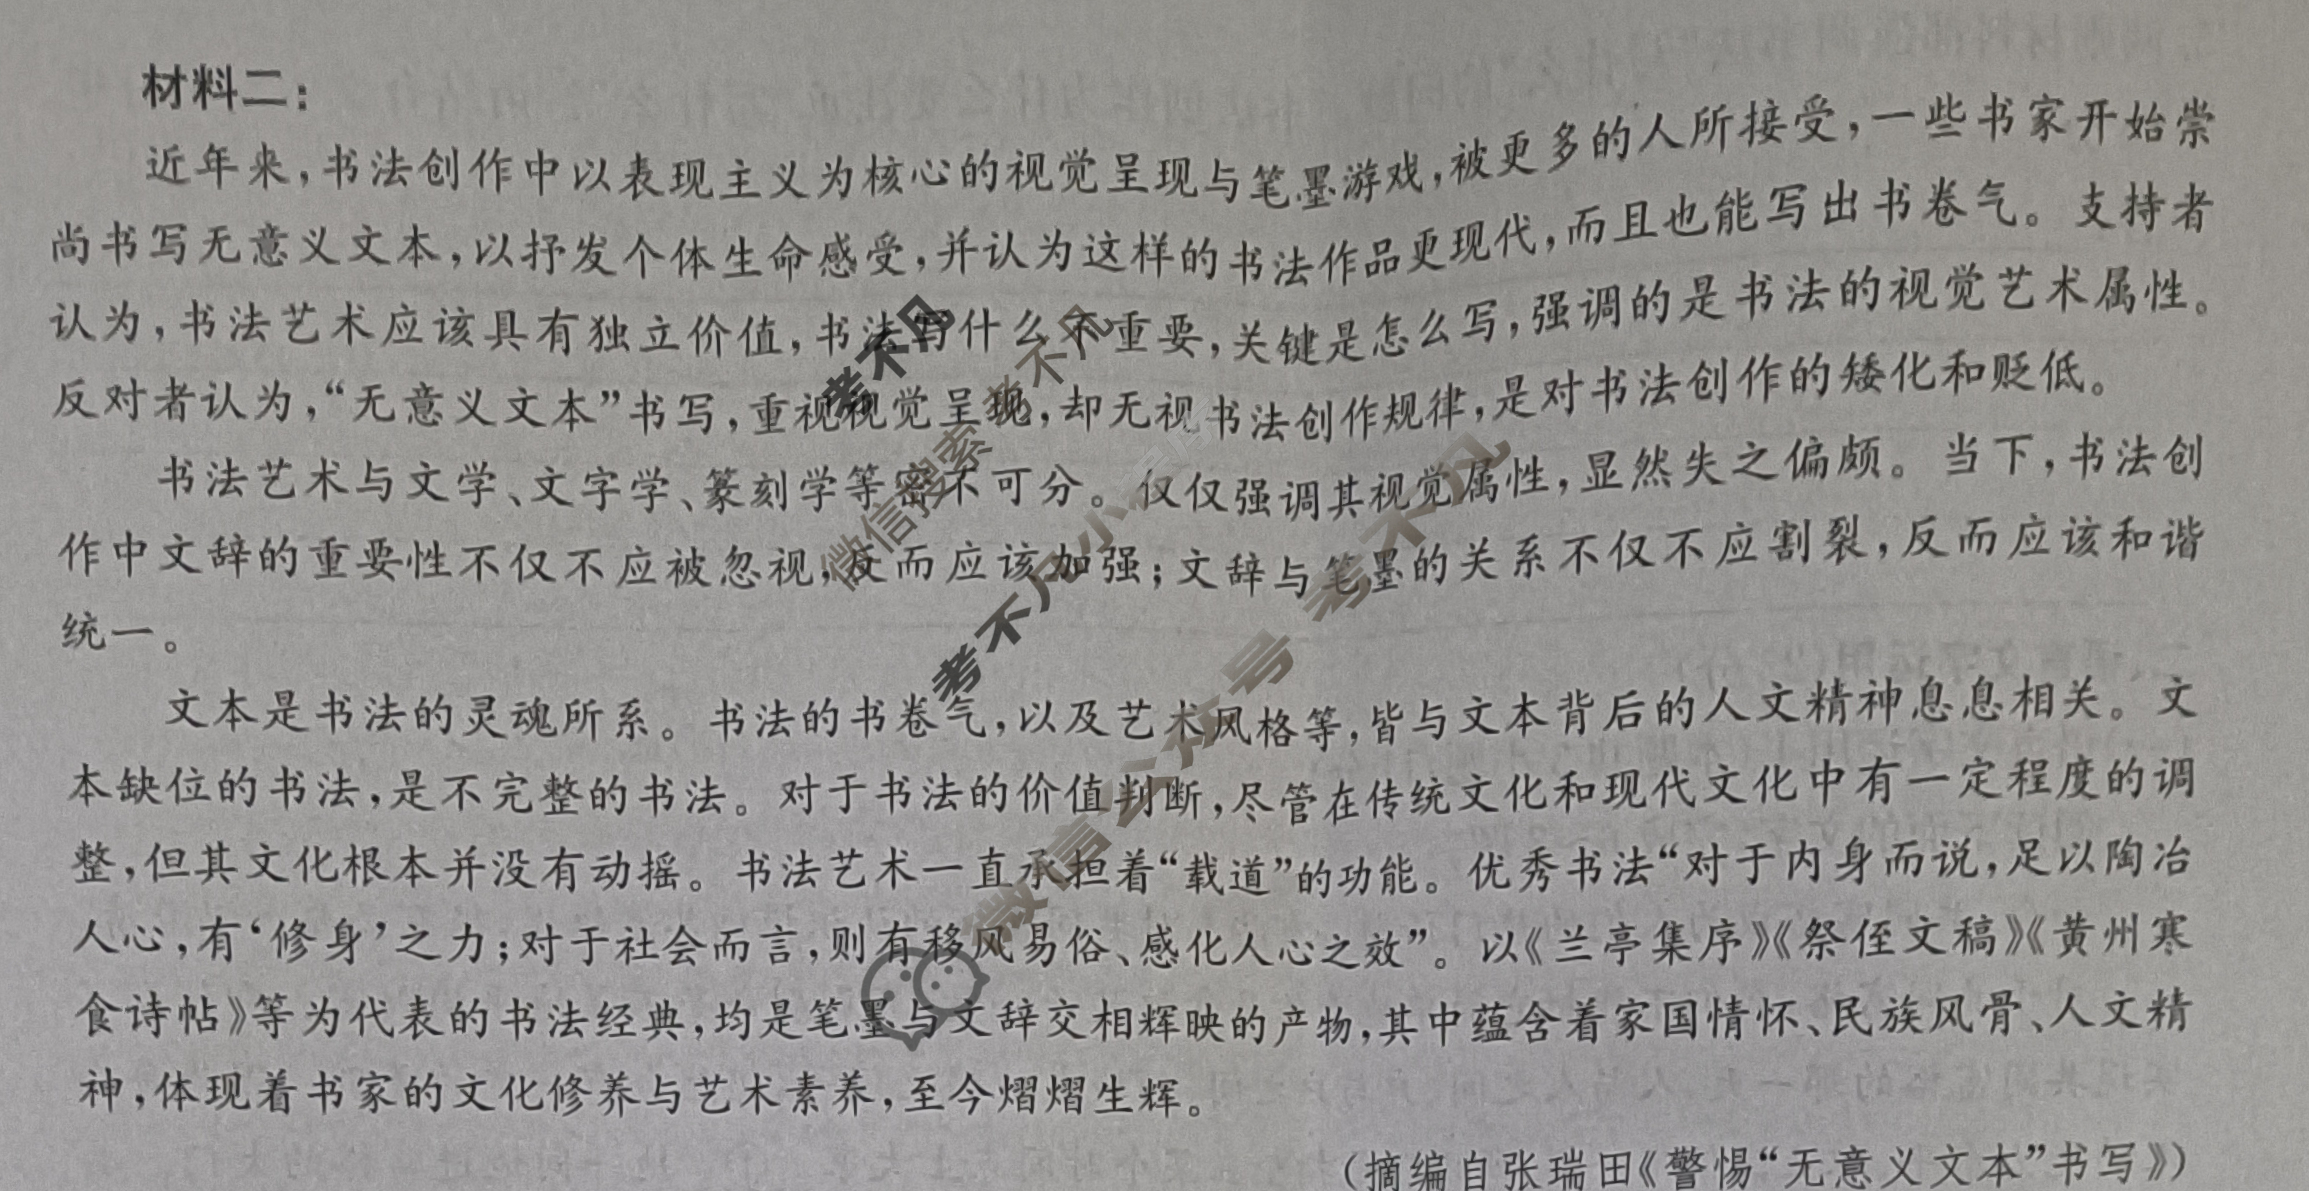 材料二：
近年来，书法创作中以表现主义为核心的视觉呈现与笔墨游戏，被更多的人所接受，一些书家开始崇
尚书写无意义文本，以抒发个体生命感受，并认为这样的书法作品更现代，而且也能写出书卷气。支持者
认为，书法艺术应该具有独立价值，书法写什么不重要，关键是怎么写，强调的是书法的视觉艺术属性。
反对者认为，“无意义文本”书写，重视视觉呈现，却无视书法创作规律，是对书法创作的矮化和贬低。
书法艺术与文学、文字学、篆刻学等密不可分。仅仅强调其视觉属性，显然失之偏颇。当下，书法创
作中文辞的重要性不仅不应被忽视，反而应该加强；文辞与笔墨的关系不仅不应割裂，反而应该和谐
统一。
文本是书法的灵魂所系。书法的书卷气，以及艺术风格等，皆与文本背后的人文精神息息相关。文
本缺位的书法，是不完整的书法。对于书法的价值判断，尽管在传统文化和现代文化中有一定程度的调
整，但其文化根本并没有动摇。书法艺术一直承担着“载道”的功能。优秀书法“对于内身而说，足以陶冶
人心，有‘修身’之力；对于社会而言，则有移风易俗、感化人心之效”。以《兰亭集序》《祭侄文稿》《黄州寒
食诗帖》等为代表的书法经典，均是笔墨与文辞交相辉映的产物，其中蕴含着家国情怀、民族风骨、人文精
神，体现着书家的文化修养与艺术素养，至今熠熠生辉。
（摘编自张瑞田《警惕“无意义文本”书写》）
考不凡
微信搜索 考不凡
考不凡小程序
微信公众号 考不凡